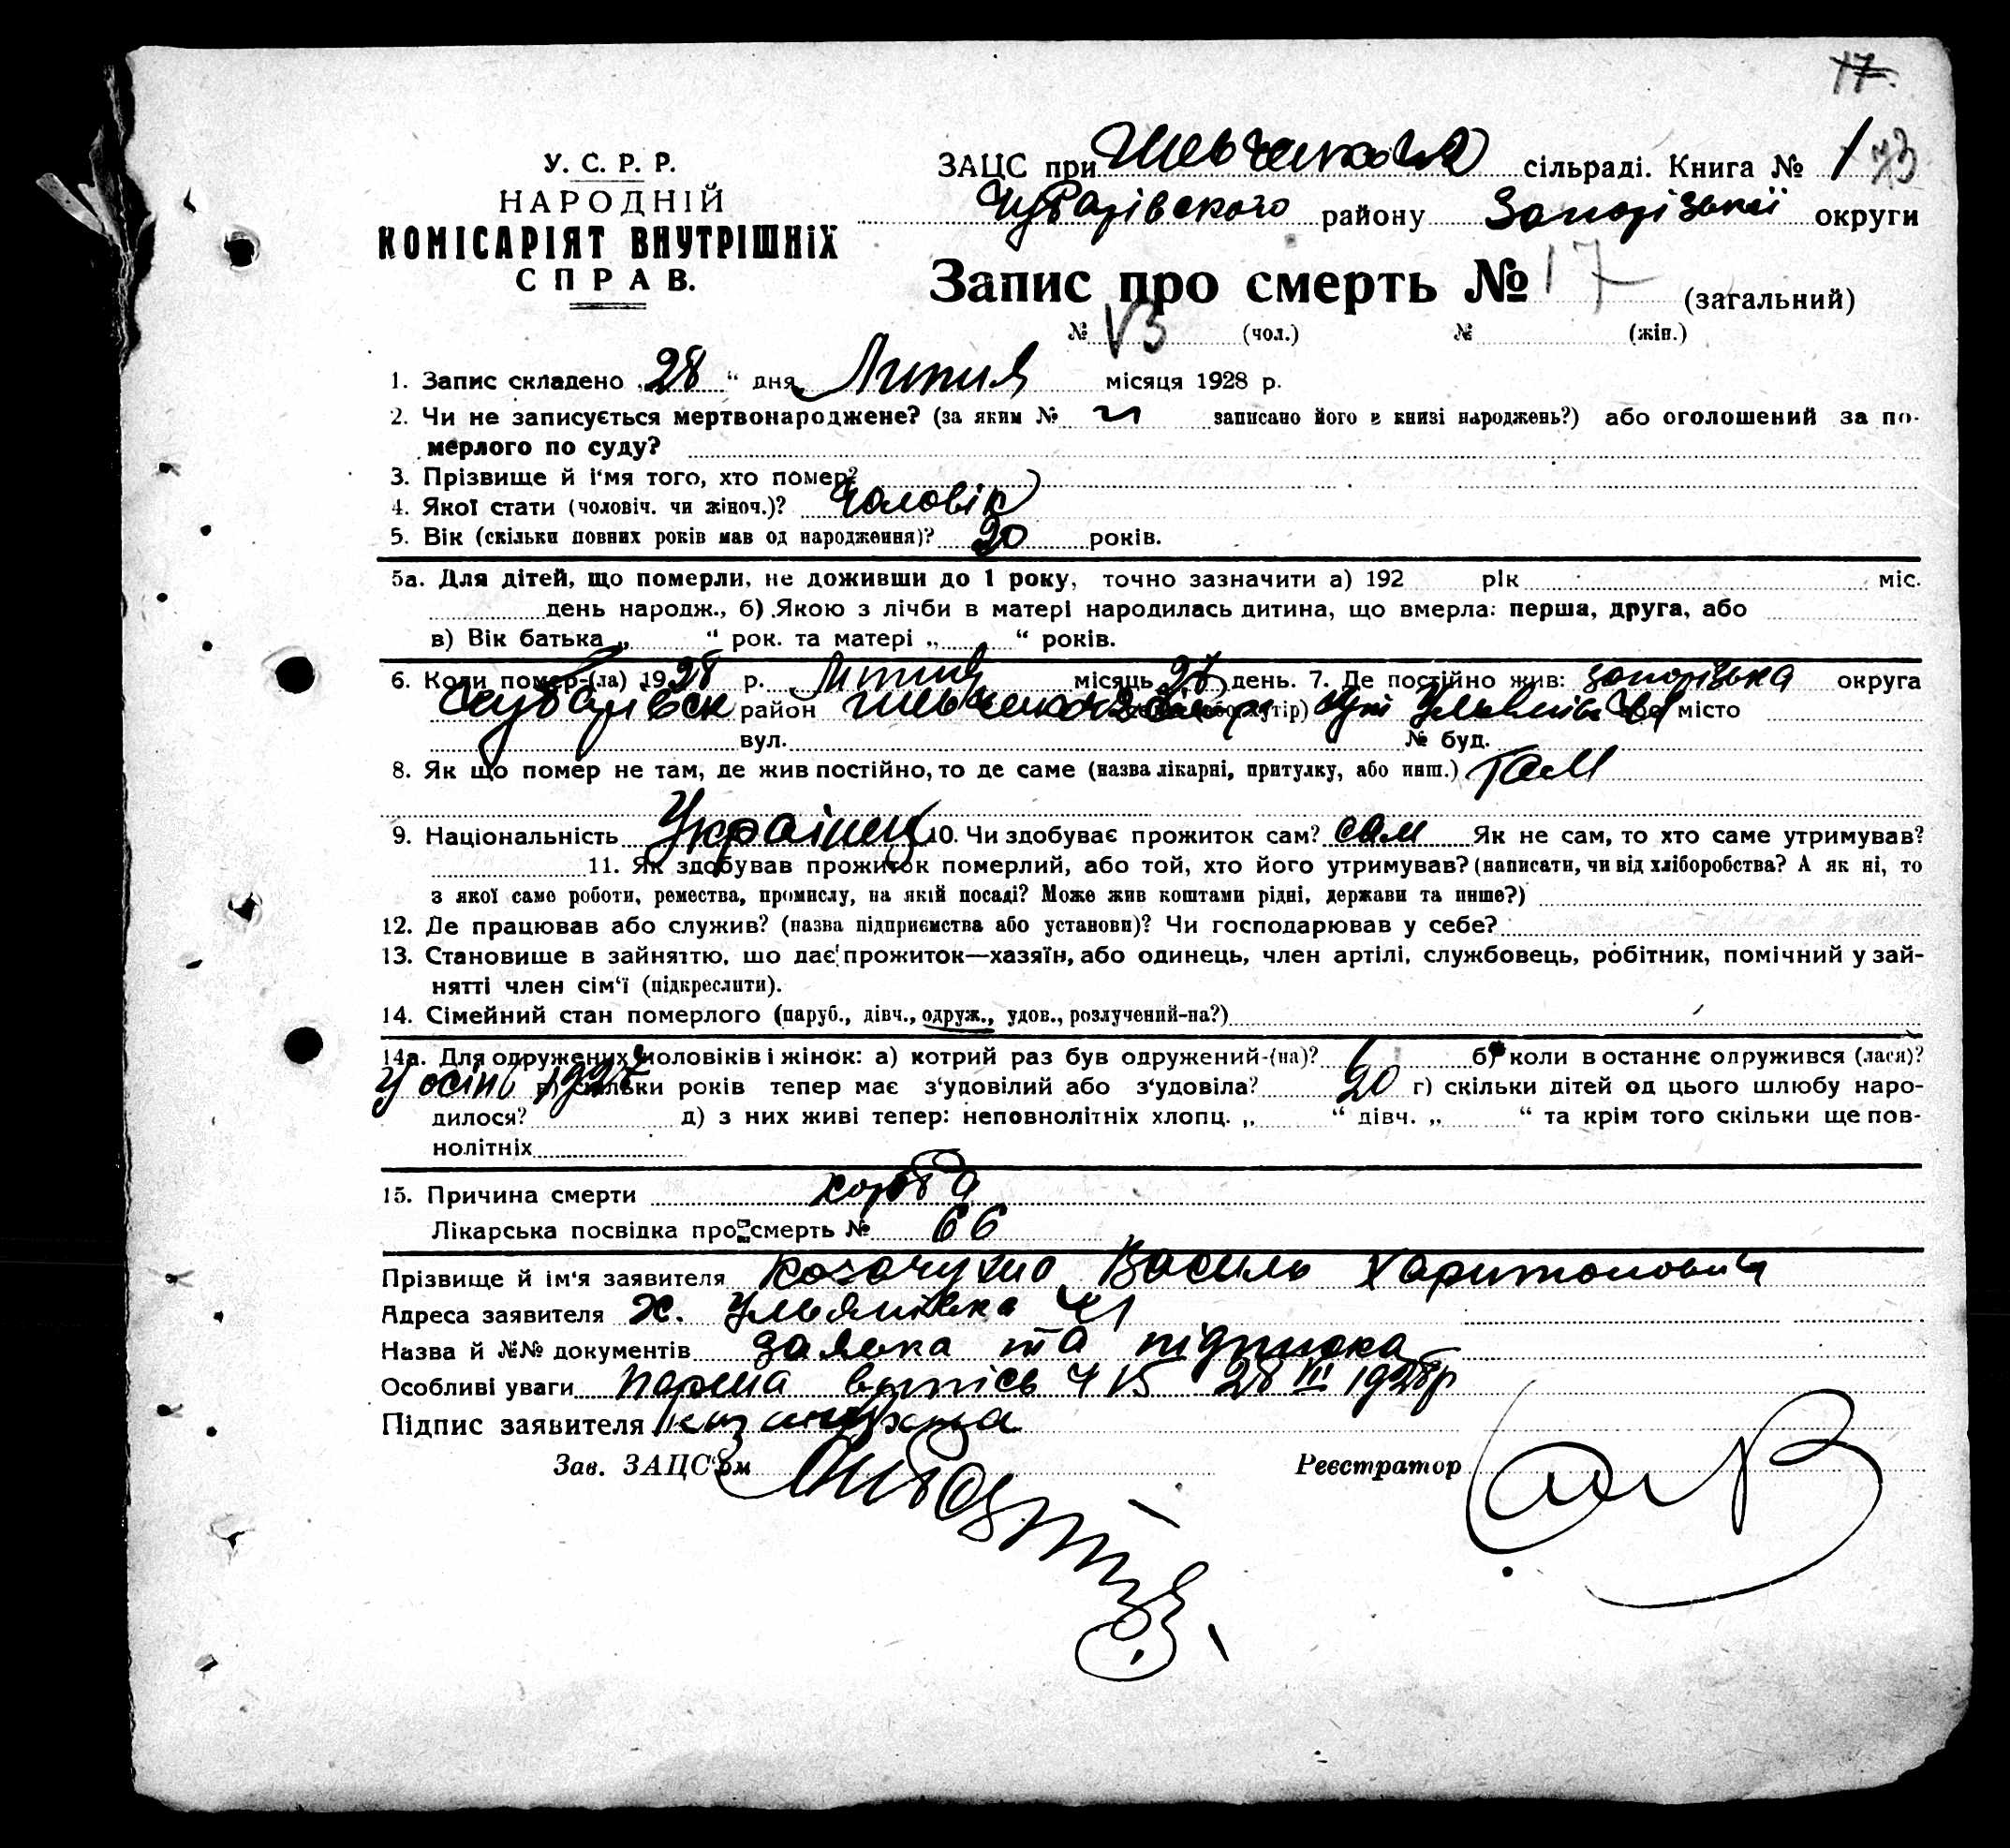 17.
У. С. Р. Р.
НАРОДНІЙ
КОМІСАРІЯТ ВНУТРІШНІХ
СПРАВ.
ЗАЦС при Шевченковск сільраді. Книга № 1 73
Чубарівского району Запорізької округи
Запис про смерть № 17 (загальний)
№ 13 (чол.) № (жін.)
1. Запис складено „28“ дня Липня місяця 1928 р.
2. Чи не записується мертвонароджене? (за яким № записано його в книзі народжень?) або оголошений за по-
мерлого по суду?
3. Прізвище й і'мя того, хто помер?
4. Якої стати (чоловіч. чи жіноч.)? Чоловік
5. Вік (скільки повних років мав од народження)? 20 років.
5а. Для дітей, що померли, не доживши до 1 року, точно зазначити а) 192 рік міс.
день народж., б) Якою з лічби в матері народилась дитина, що вмерла: перша, друга, або
в) Вік батька „ “ рок. та матері „ “ років.
6. Коли помер-(ла) 1928 р. Липня місяць 27 день. 7. Де постійно жив: запорізька округа
Чубарівск район або місто
вул. № буд.
8. Як що помер не там, де жив постійно, то де саме (назва лікарні, притулку, або инш.) там
9. Національність Українец 10. Чи здобуває прожиток сам? сам Як не сам, то хто саме утримував?
11. Як здобував прожиток померлий, або той, хто його утримував? (написати, чи від хліборобства? А як ні, то
з якої саме роботи, ремества, промислу, на якій посаді? Може жив коштами рідні, держави та инше?)
12. Де працював або служив? (назва підприємства або установи)? Чи господарював у себе?
13. Становище в зайняттю, шо дає прожиток—хазяїн, або одинець, член артілі, службовець, робітник, помічний у зай-
нятті член сім'ї (підкреслити).
14. Сімейний стан померлого (паруб., дівч., одруж., удов., розлучений-на?)
14а. Для одружених чоловіків і жінок: а) котрий раз був одружений-(на)? 1 б) коли в останнє одружився (лася)?
У осінь 1927 в) скільки років тепер має з'удовілий або з'удовіла? 20 г) скільки дітей од цього шлюбу наро-
дилося? д) з них живі тепер: неповнолітніх хлопц. „ “ дівч. „ “ та крім того скільки ще пов-
нолітніх
15. Причина смерти
Лікарська посвідка про смерть № 66
Прізвище й ім'я заявителя Козачухно Василь Харитонович
Адреса заявителя х. Ульянівка Ч1
Назва й №№ документів заявка та підписка
Особливі уваги 28 1928р
Підпис заявителя
Зав. ЗАЦС'ом Реєстратор